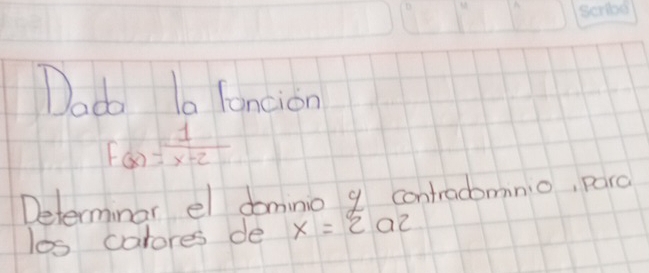 Scribe
Dada la función
F(x) = 1/x-2
Determinar el dominio y contradominio, para
los catores de x = 2 a2